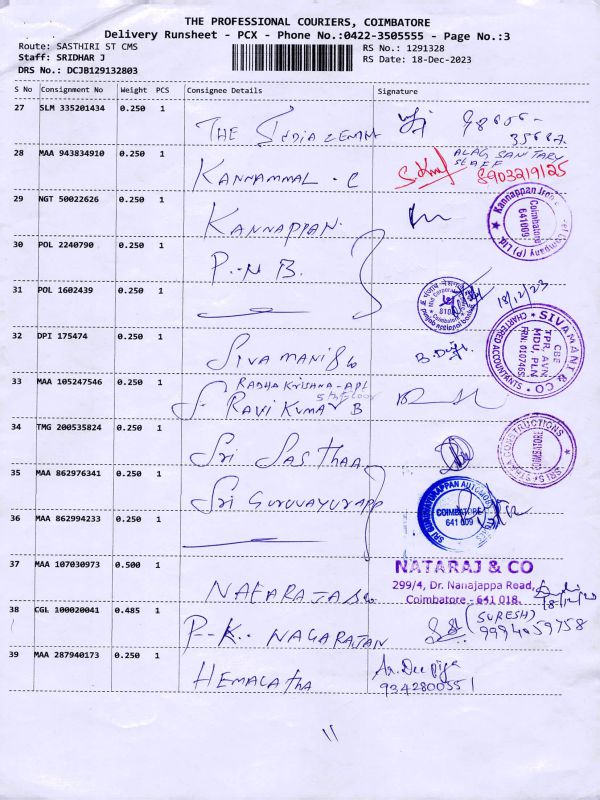 THE PROFESSIONAL COURIERS, COIMBATORE
Delivery Runsheet - PCX - Phone No.:0422-3505555 - Page No.:3
Route: SASTHIRI ST CMS
RS No.: 1291328
Staff: SRIDHAR J
RS Date: 18-Dec-2023
DRS No.: DCJB129132803
S No Consignment No Weight PCS Consignee Details Signature
27 SLM 335201434 0.250 1
THE India CEMENT
98655-
35687
28 MAA 943834910 0.250 1
KANNAMMAL . C
ALAG SANITARY
STAFF
8903219125
29 NGT 50022626 0.250 1
KANNAPPAN.
Coimbatore
641009
30 POL 2240790 0.250 1
P..N B.
31 POL 1602439 0.250 1
18/12/23
32 DPI 175474 0.250 1
SIVA MANI & Co
SIVAMANI & CO
CHARTERED ACCOUNTANTS
CBE
TPR, AVN
MDU, PLN
33 MAA 105247546 0.250 1
RADHA KRISHNA-APT
S. RAVI KUMAR B
34 TMG 200535824 0.250 1
Sri Sasthaa
COIMBATORE
35 MAA 862976341 0.250 1
Sri GURUVAYURAPP
SRI GURUVAYURAPPAN AUTOMOBILES
COIMBATORE
641 009
36 MAA 862994233 0.250 1
37 MAA 107030973 0.500 1
NATARAJ & Co
NATARAJ & CO
299/4, Dr. Nanajappa Road,
Coimbatore - 641 018.
38 CGL 100020041 0.485 1
P-K.. NAGARAJAN
(SURESH)
9994059758
39 MAA 287940173 0.250 1
HEMALATHA
Ar. Deepiga
9342800551
11